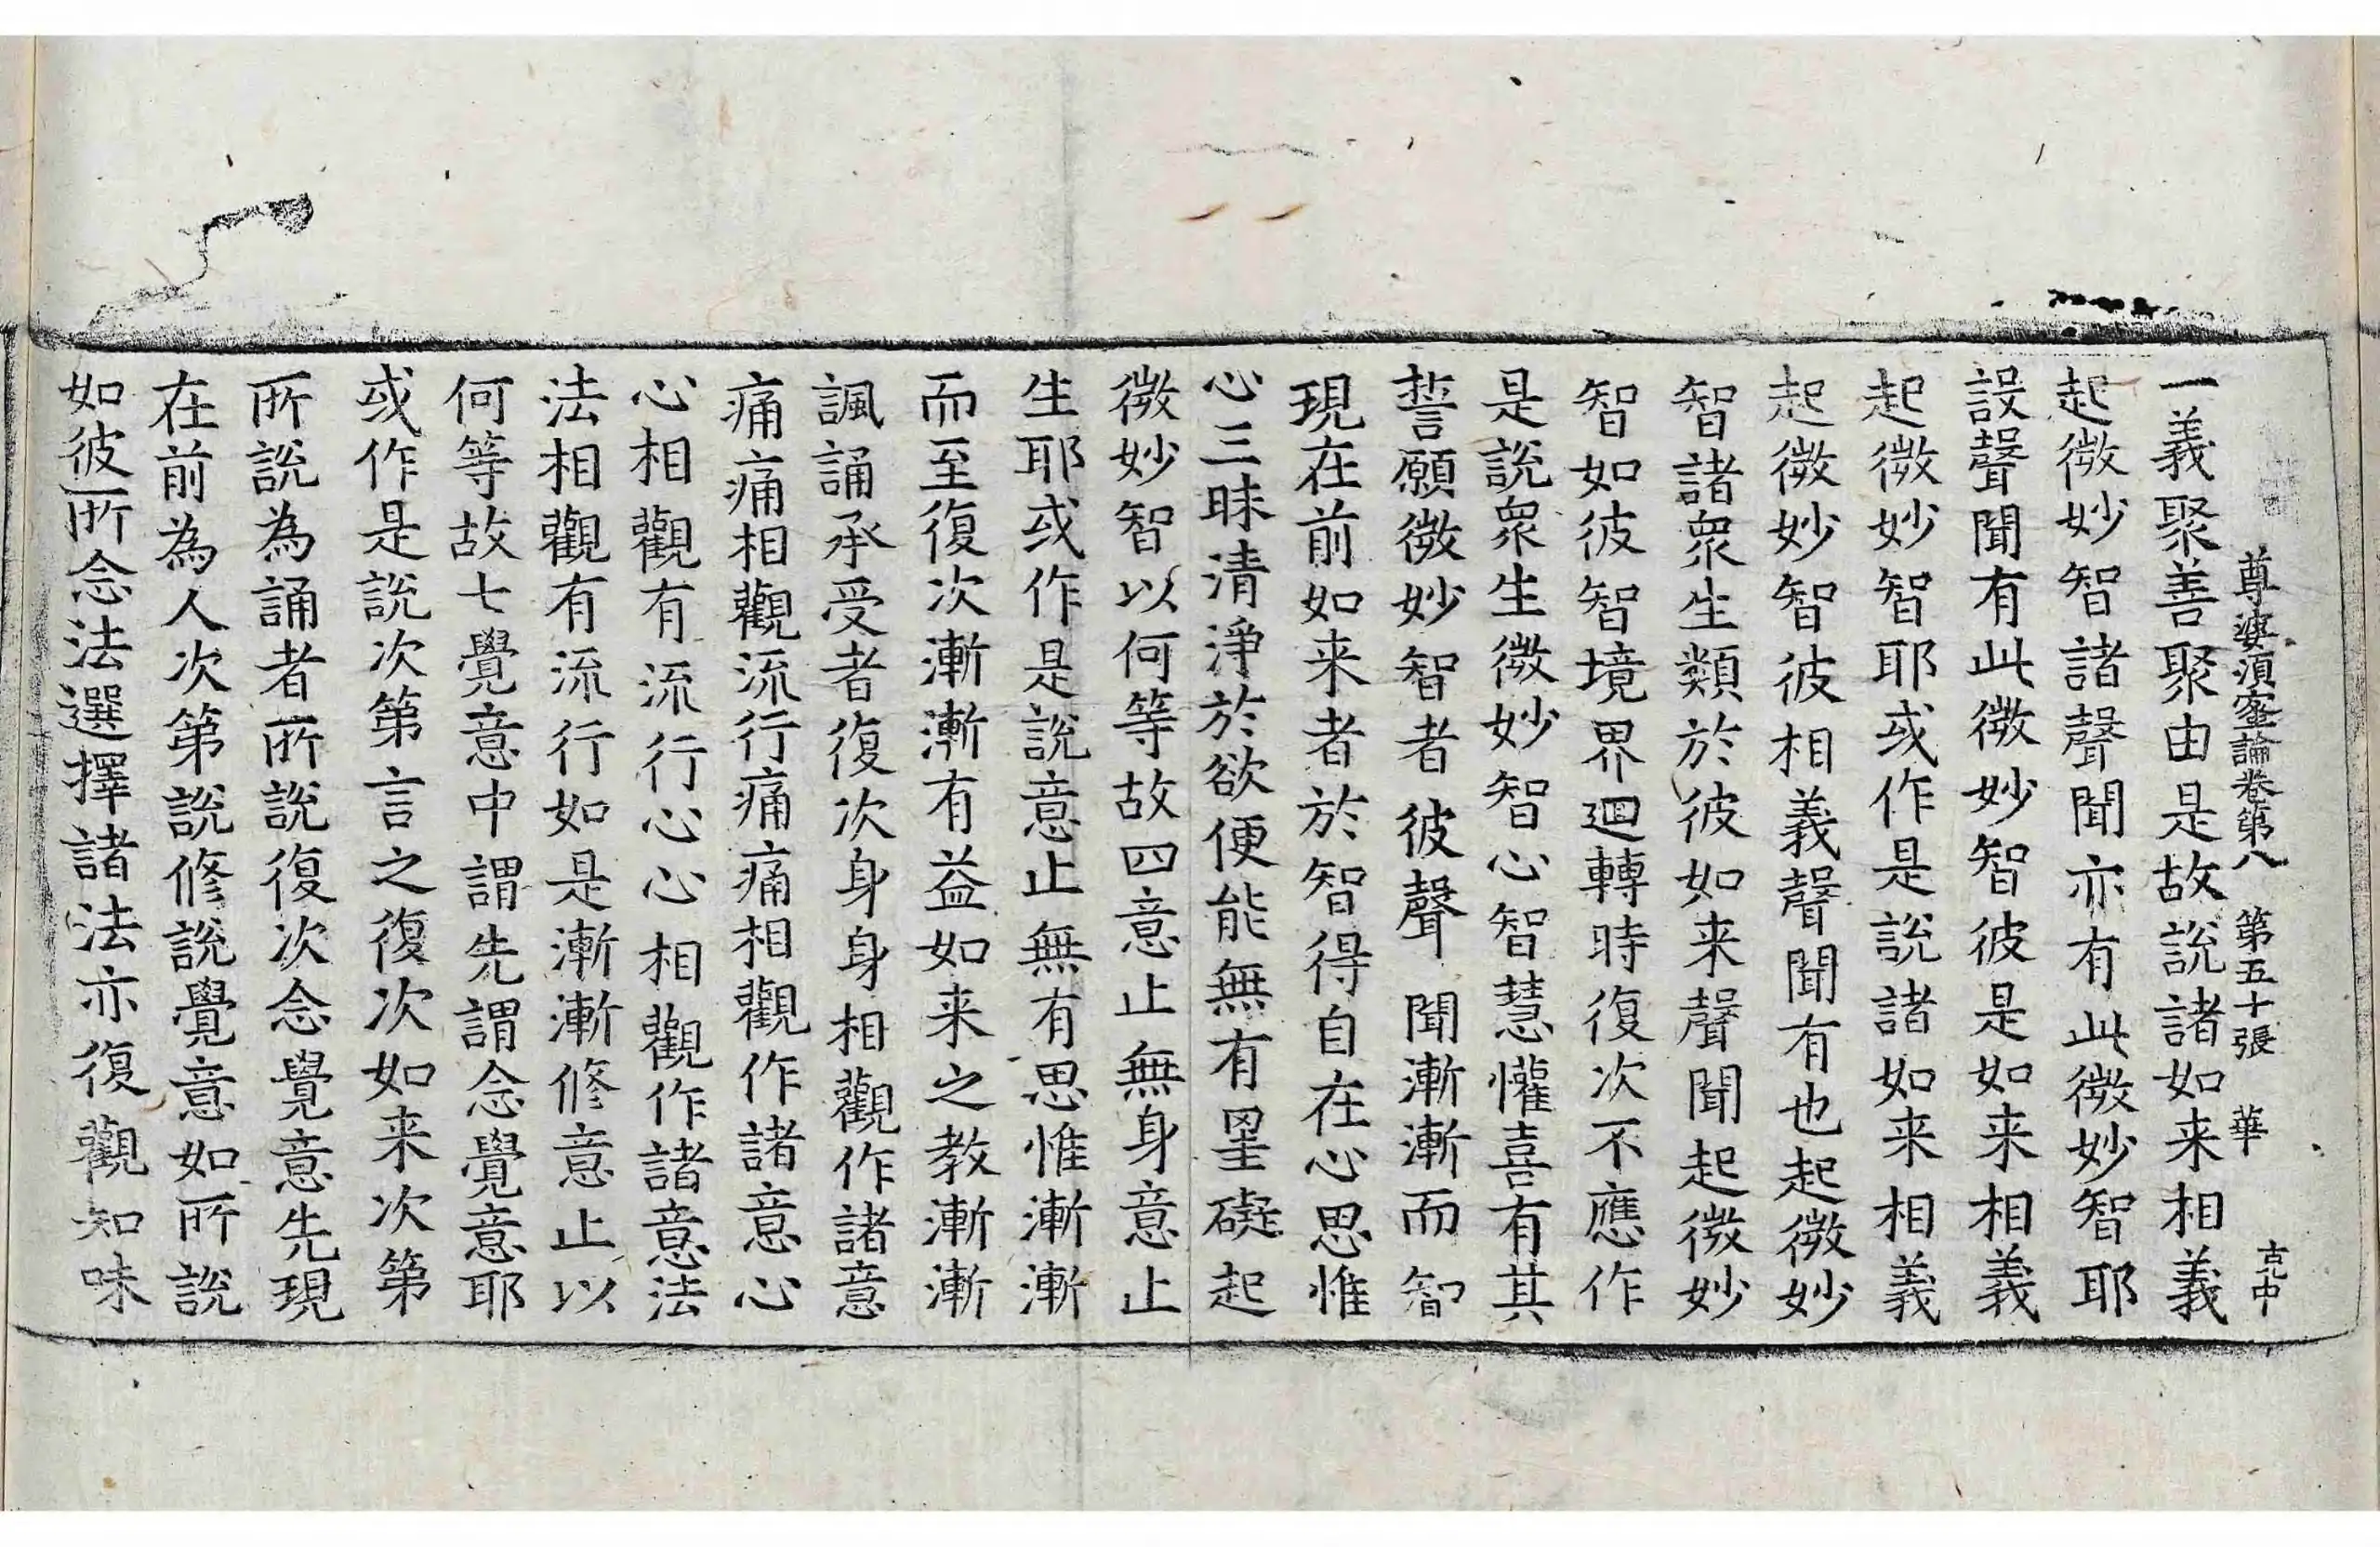 尊婆須蜜論卷第八 第五十張 華
一義聚善聚由是故說諸如来相義
起微妙智諸聲聞亦有此微妙智耶
設聲聞有此微妙智彼是如来相義
起微妙智耶或作是說諸如来相義
起微妙智彼相義聲聞有也起微妙
智諸衆生類於彼如来聲聞起微妙
智如彼智境界迴轉時復次不應作
是說衆生微妙智心智慧懽喜有其
誓願微妙智者彼聲聞漸漸而智
現在前如来者於智得自在心思惟
心三昧清淨於欲便能無有罣礙起
微妙智以何等故四意止無身意止
生耶或作是說意止無有思惟漸漸
而至復次漸漸有益如来之教漸漸
諷誦承受者復次身身相觀作諸意
痛痛相觀流行痛痛相觀作諸意心
心相觀有流行心心相觀作諸意法
法相觀有流行如是漸漸修意止以
何等故七覺意中謂先謂念覺意耶
或作是說次第言之復次如来次第
所說為誦者所說復次念覺意先現
在前為人次第說修說覺意如所說
如彼所念法選擇諸法亦復觀知味